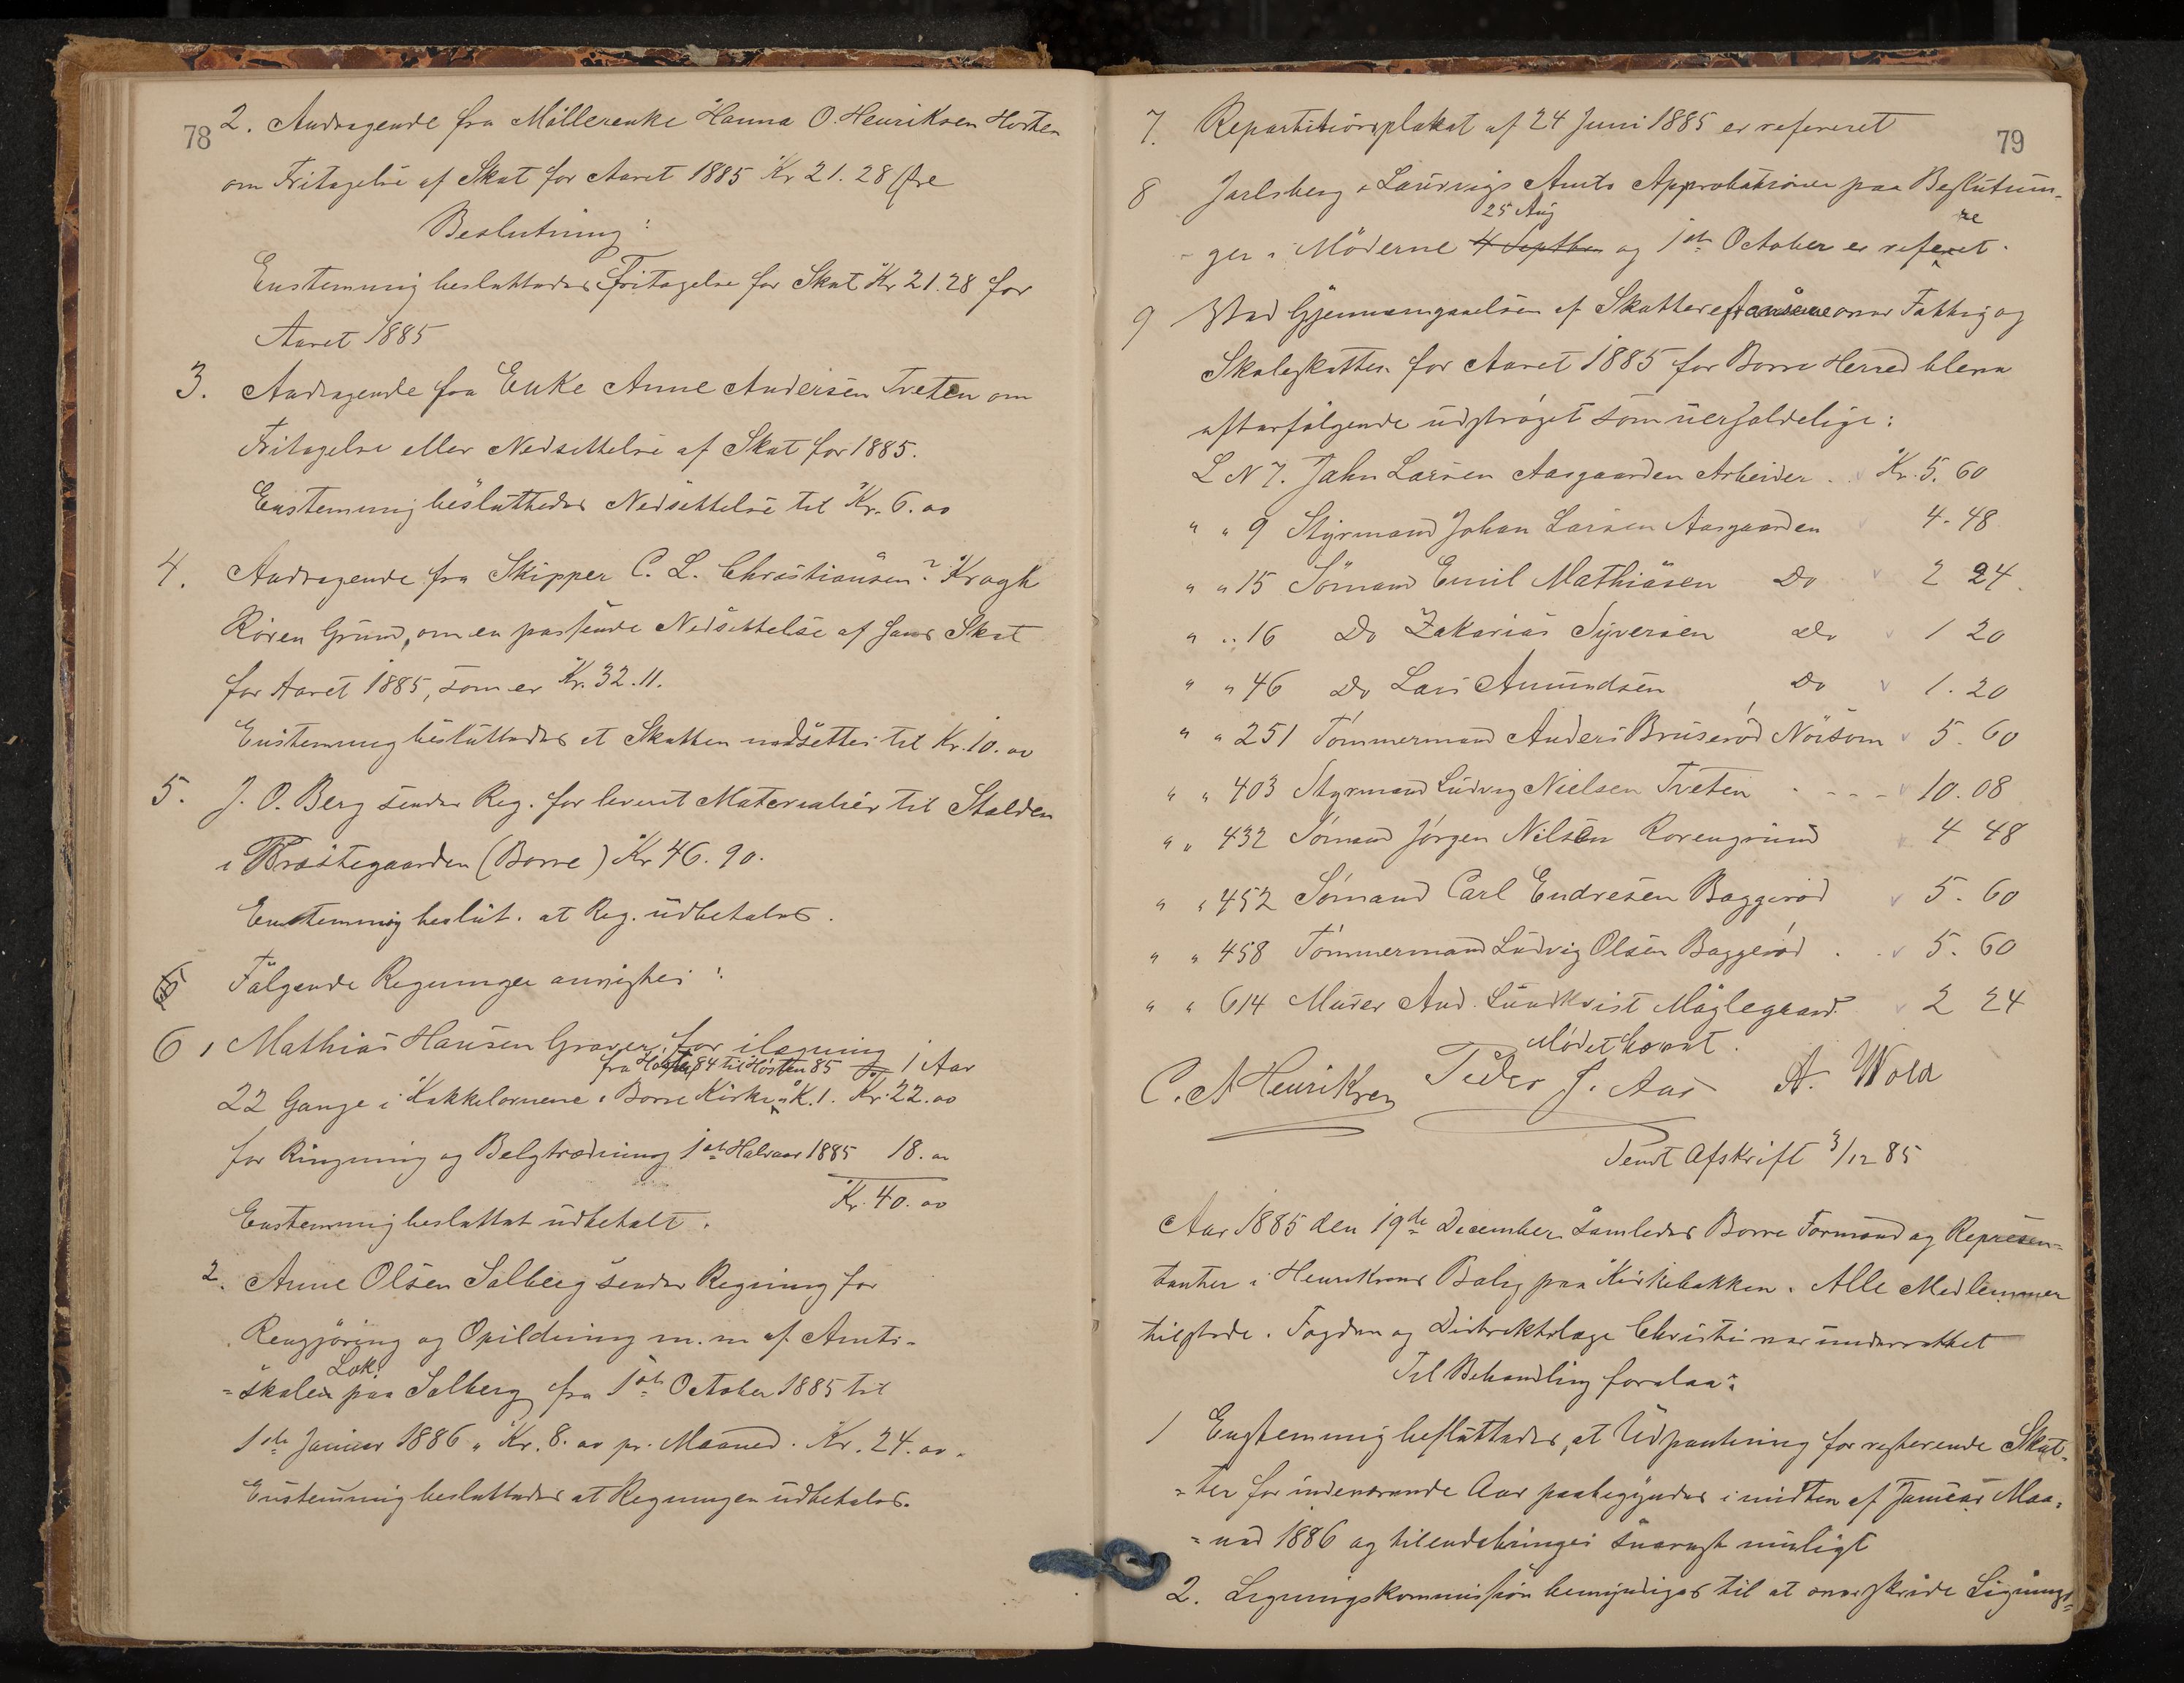 78
2. Andragende fra Möllerenke Hanna O. Henriksen Horten
om Fritagelse af Skat for Aaret 1885 Kr 21.28 Øre
Beslutning:
Enstemmig besluttedes Fritagelse for Skat Kr 21.28 for
Aaret 1885
3. Andragende fra Enke Anne Andersen Tveten om
Fritagelse eller Nedsettelse af Skat for 1885.
Enstemmig besluttedes Nedsettelse til Kr. 6.00
4. Andragende fra Skipper C. L. Christiansen? Krogh
Rören Grund, om en passende Nedsettelse af hans Skat
for Aaret 1885, som er Kr. 32.11.
Enstemmig besluttedes at Skatten nedsettes til Kr. 10.00
5. J. O. Berg sender Reg. for leveret Materialier til Stalden
i Præstegaarden (Borre) Kr 46.90.
Enstemmig beslut. at Reg. udbetales.
Fölgende Regninger anvistes:
6 1 Mathias Hansen Graver, for ilægning
fra Høsten 84 til Høsten 85 1 Aar
22 Gange i Kakkelovnene i Borre Kirke a K. 1. Kr. 22.00
for Ringning og Belgtrædning 1ste Halvaar 1885 18.00
Kr. 40.00
Enstemmig besluttet udbetalt.
2. Anne Olsen Solberg sender Regning for
Rengjöring og Opildning m. m. af Amts-
Lok.
=skolen paa Solberg fra 1ste October 1885 til
1ste Januar 1886 a Kr. 8.00 pr. Maaned. Kr. 24.00.
Enstemmig besluttedes at Regningen udbetales.
79
7. Repartitionsplakat af 24 Juni 1885 er refereret
8 Jarlsberg & Laurvigs Amts Approbationer paa Beslutnin-
25 Aug
re
-ger i Möderne 4 Septbr og 1ste October er referet.
9 Ved Gjennemgaaelsen af Skatterestancerne over Fattig og
Skoleskatten for Aaret 1885 for Borre Herred bleve
efterfölgende udströget som uerholdelige:
L N 7. John Larsen Aasgaarden Arbeider . . Kr. 5.60
" " 9 Styrmand Johan Larsen Aasgaarden 4.48
" " 15 Sömand Emil Mathiasen Do 2 24.
" " 16 Do Zakarias Syversen Do 1 20
" " 46 Do Lars Amundsen Do 1.20
" " 251 Tömmermand Anders Bruseröd Nörsom 5.60
" " 403 Styrmand Ludvig Nielsen Tveten . - - - 10.08
" " 432 Sömand Jörgen Nilsen Rorengrund 4 48
" " 452 Sömand Carl Endresen Baggeröd 5.60
" " 458 Tömmermand Ludvig Olsen Baggeröd . . 5.60
" " 614 Murer And. Lundkvist Möglegaard. 2 24
Mödet hævet.
C. A Henriksen Peder J. Aas A. Wold
Sendt Afskrift 3/12 85
Aar 1885 den 19de December samledes Borre Formænd og Represen=
tanter i Henriksens Bolig paa Kirkebakken. Alle Medlemmer
tilstede. Fogden og Distriktslæge Christie var underrettet
Til Behandling forelaa:
1 Enstemmig besluttedes, at Udpantning for resterende Skat-
=ter for indeværende Aar paabegyndes i midten af Januar Maa=
=ned 1886 og tilendebringes snarest muligt
2. Ligningskommission bemyndiges til at overskride Lignings=